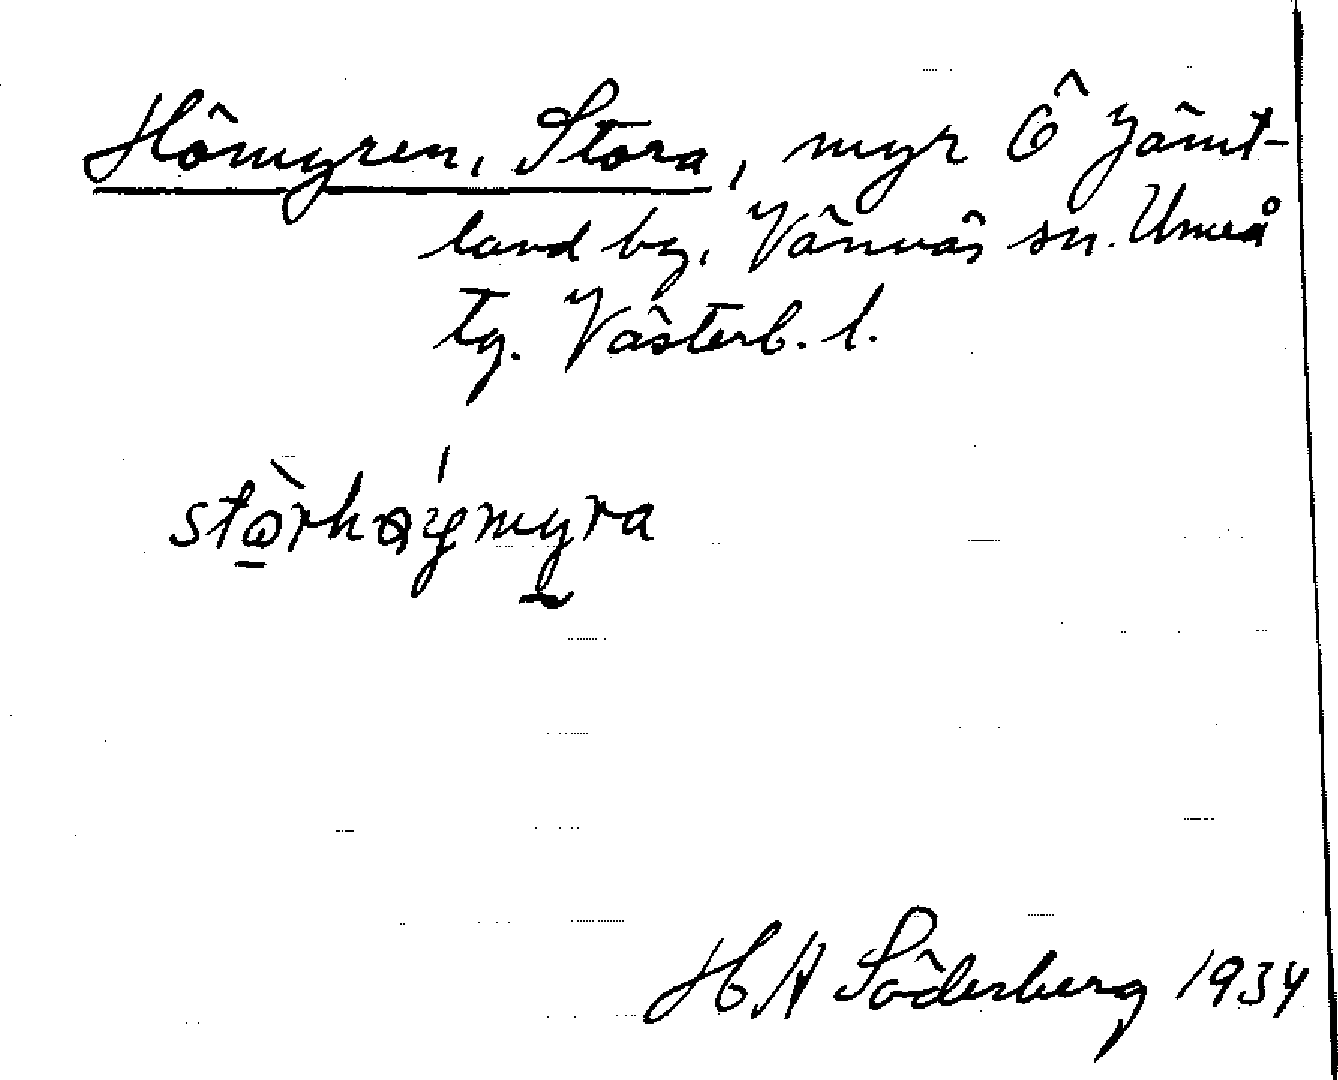 Hömyren, Stora, myr Ö Jämt-
land by, Vännäs sn. Umeå
tg. Västerb. l.
H A Söderberg 1934